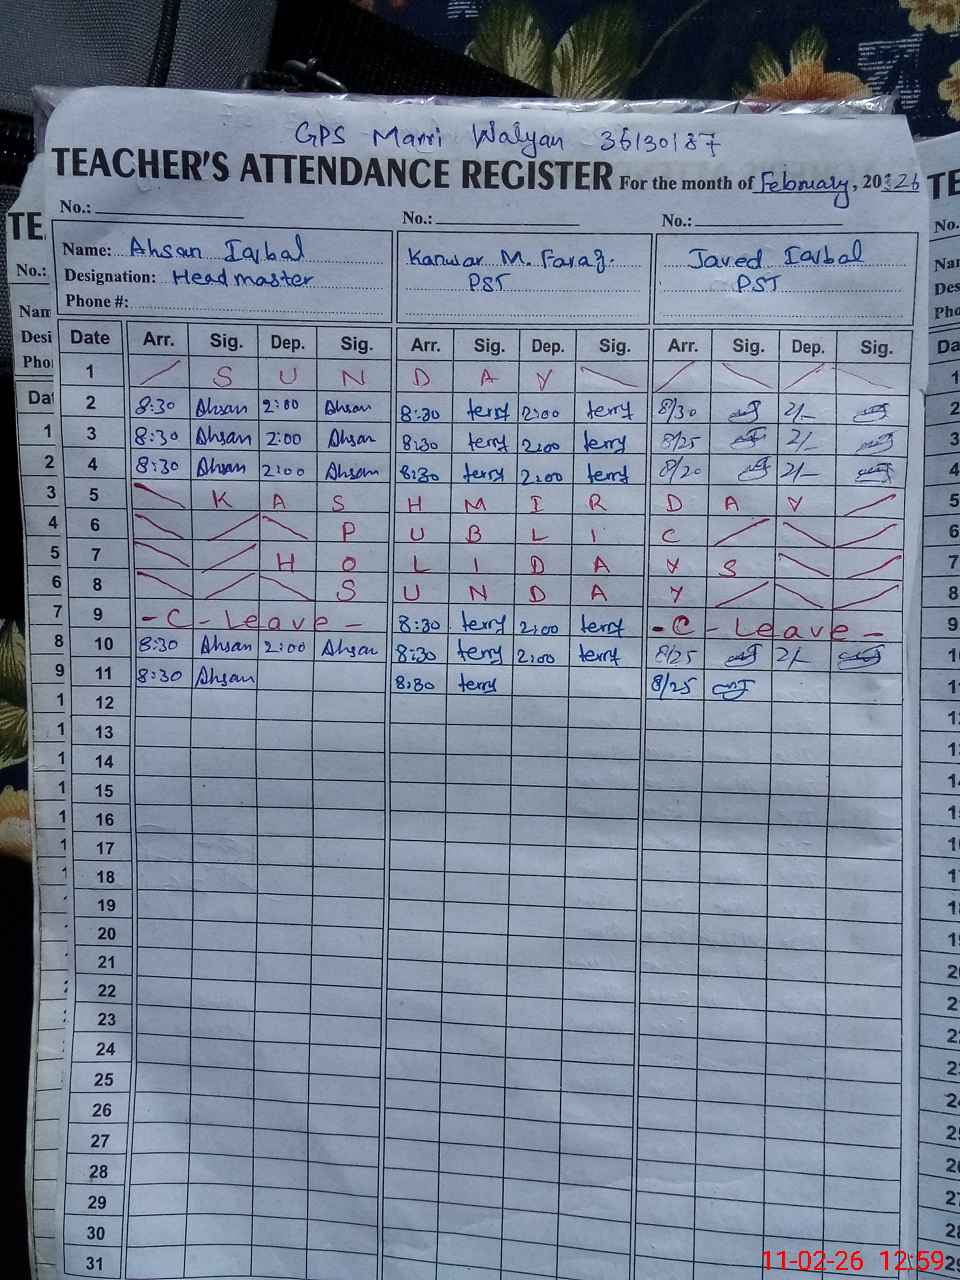 GPS Marri Walyan 36130187
TEACHER'S ATTENDANCE REGISTER For the month of February, 2026
No.: No.: No.:
Name: Ahsan Iqbal Kanwar M. Faraz. Javed Iqbal
Designation: Headmaster PST PST
Phone #:
Date Arr. Sig. Dep. Sig. Arr. Sig. Dep. Sig. Arr. Sig. Dep. Sig.
1 S U N D A Y
2 8:30 Ahsan 2:00 Ahsan 8:30 terry 2:00 terry 8/30 2/-
3 8:30 Ahsan 2:00 Ahsan 8:30 terry 2:00 terry 8/25 2/-
4 8:30 Ahsan 2:00 Ahsan 8:30 terry 2:00 terry 8/20 2/-
5 K A S H M I R D A Y
6 P U B L I C
7 H O L I D A Y S
8 S U N D A Y
9 -C-Leave- 8:30 terry 2:00 terry -C-Leave-
10 8:30 Ahsan 2:00 Ahsan 8:30 terry 2:00 terry 8/25 2/-
11 8:30 Ahsan 8:30 terry 8/25
12
13
14
15
16
17
18
19
20
21
22
23
24
25
26
27
28
29
30
31
11-02-26 12:59